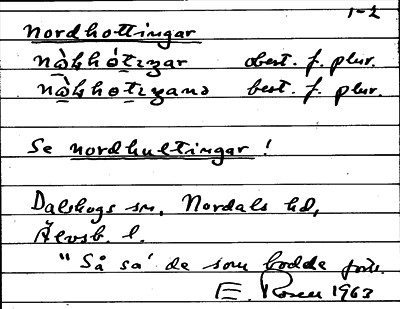 1-2
nordhottingar
nàkhótiŋar obest. f. plur.
nàkhotiŋana best. f. plur.
Se nordhultingar!
Dalskogs sn, Nordals hd,
Älvsb. l.
"Så sa' de som bodde förr.
E. Rosell 1963